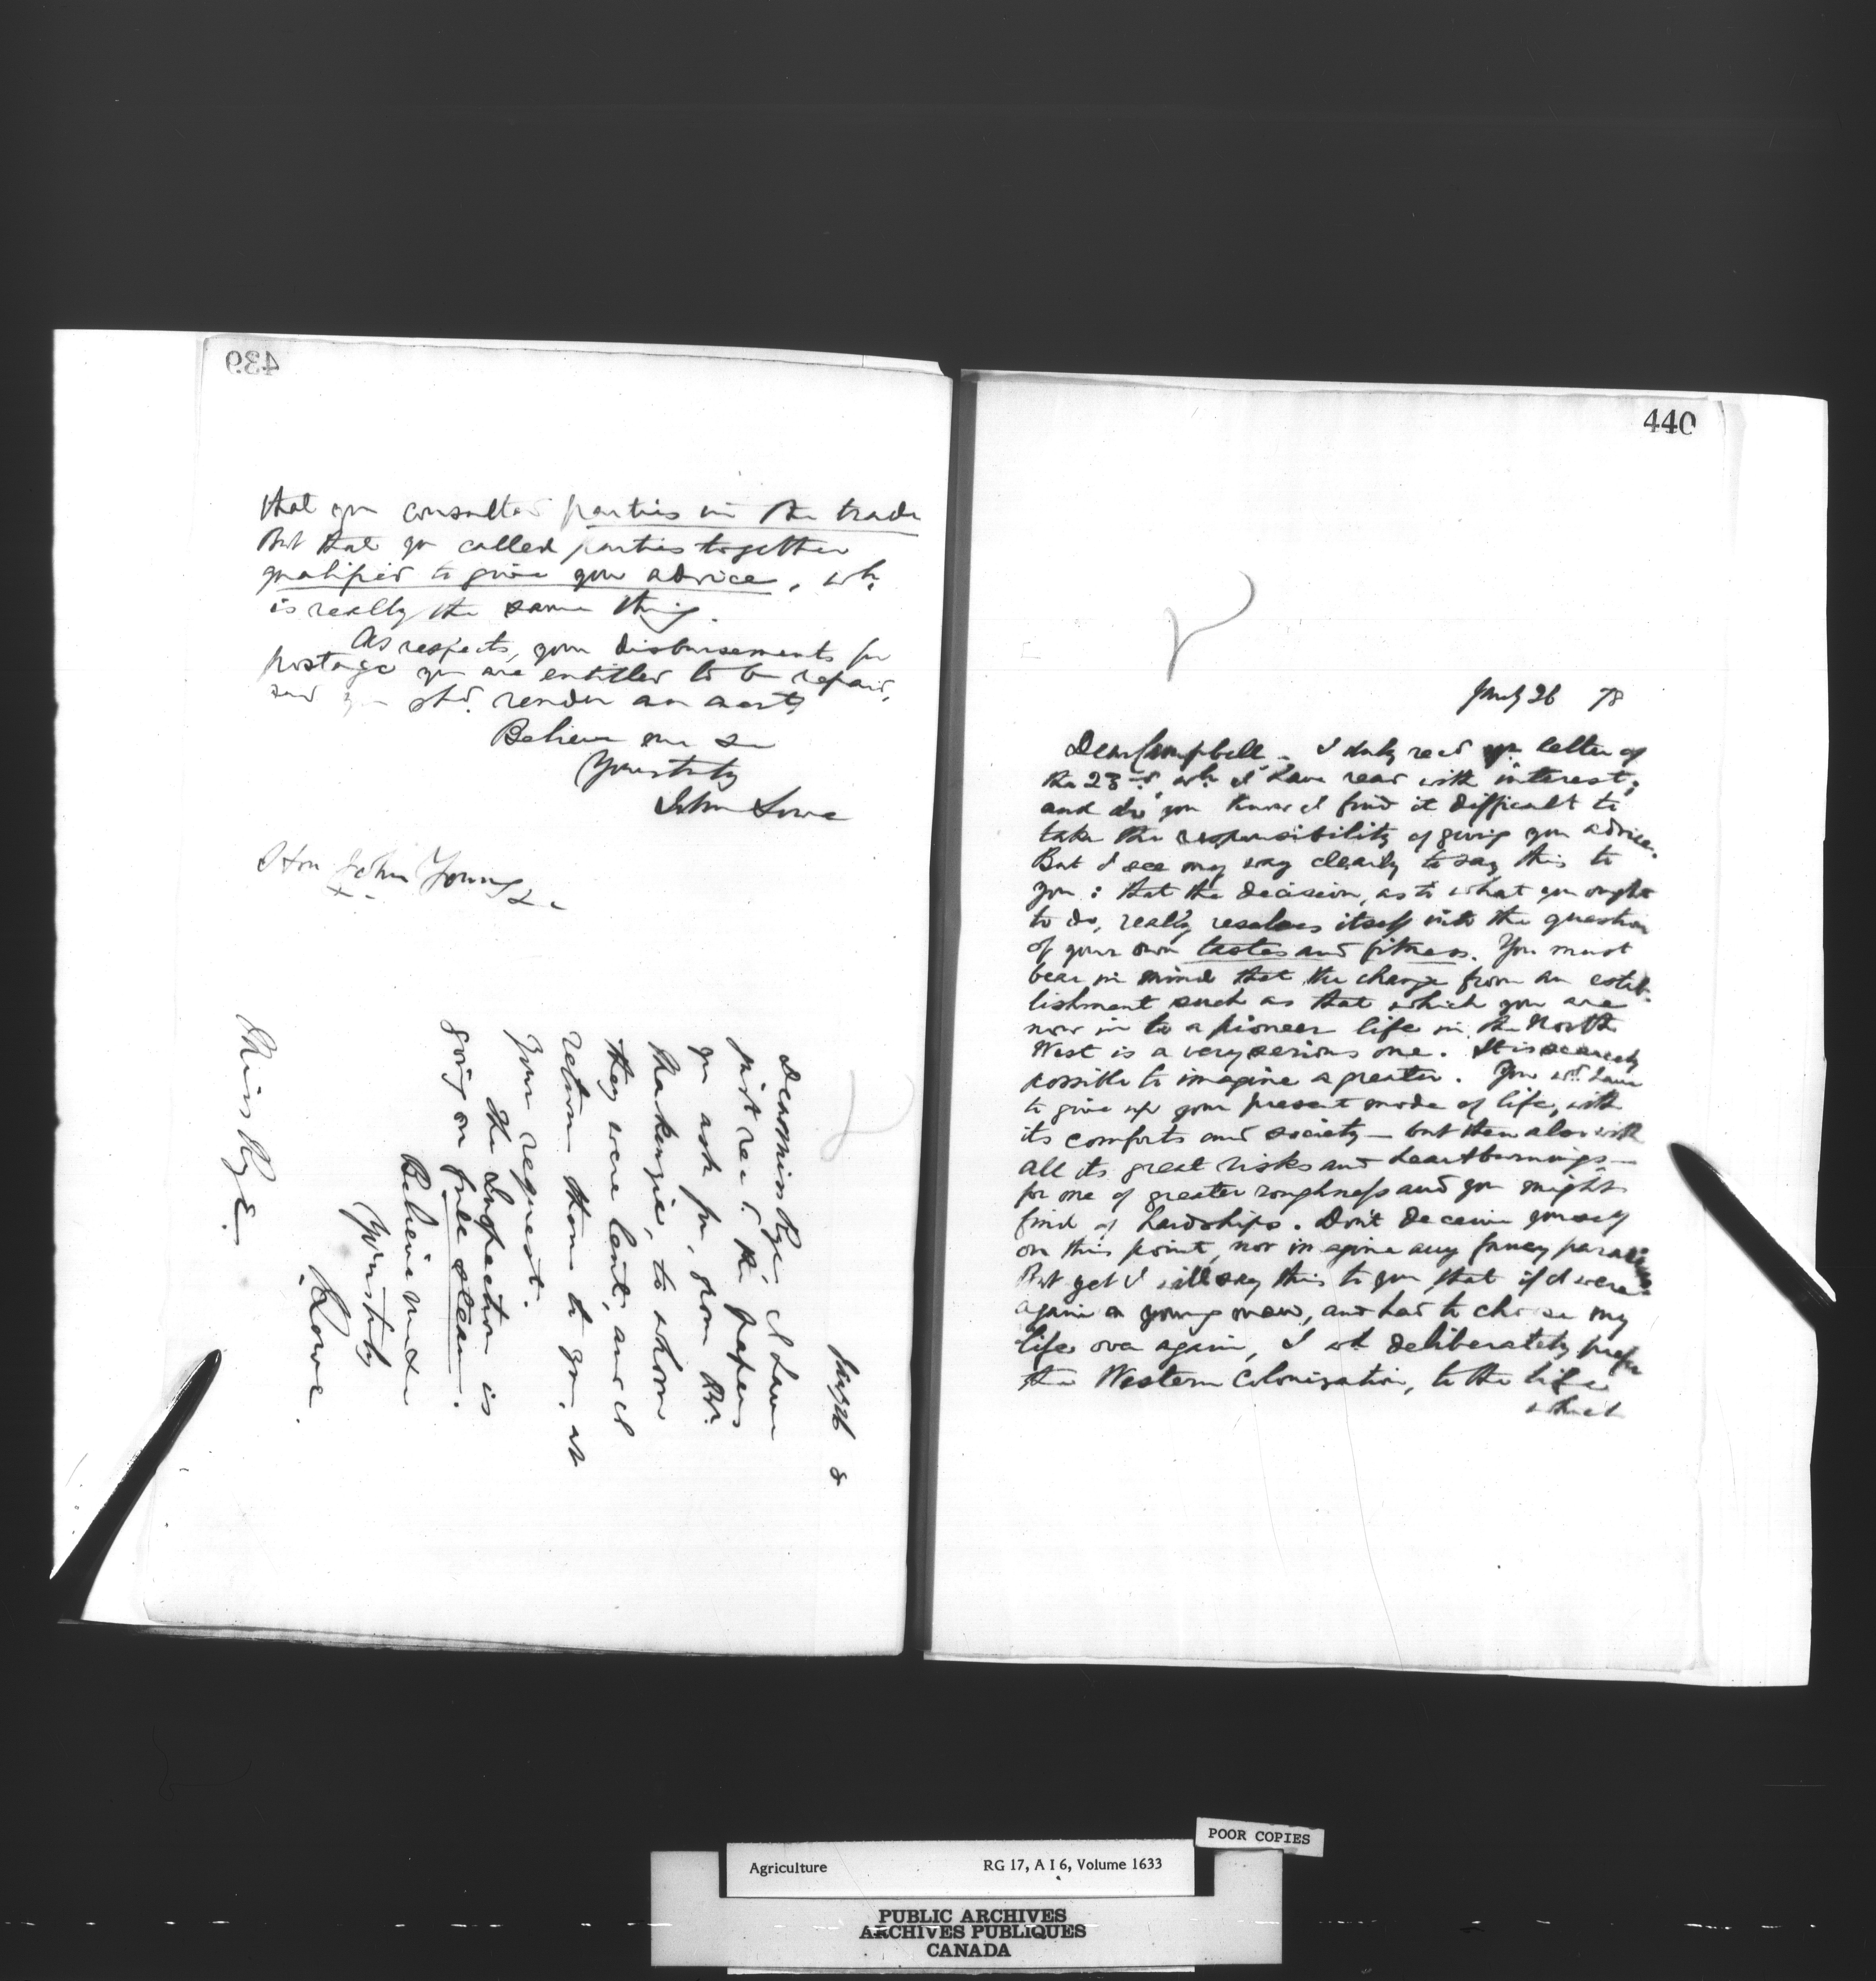 439
that you consulted parties in the trade
But that you called parties together
qualified to give you advice, wh.
is really the same thing.
As respects, your disbursements for
postage you are entitled to be repaid,
and you shd. render an acct.
Believe me Dr
Yours truly
John Lowe
Hon John Young
July 26 8
Dear Miss Rye, I have
just recd. the papers
you ask for, from Mr.
Mackenzie, to whom
they were lent, and I
return them to you, at
your request.
The Inspection is
going on full steam.
Believe me
Yours truly
J Lowe.
Miss Rye
440
26 78
Dear Campbell - I duly recd yr letter of
the 23rd, wh. I have read with interest;
and do you know I find it difficult to
take the responsibility of giving you advice.
But I see my way clearly to say this to
you: that the decision, as to what you ought
to do, really resolves itself into the question
of your own tastes and fitness. You must
bear in mind that the change from an estab-
lishment such as that which you are
now in to a pioneer life in the North
West is a very serious one. It is scarcely
possible to imagine a greater. You wd. have
to give up your present mode of life, with
its comforts and society — but then also with
all its great risks and heartburnings —
for one of greater roughness and you might
find of hardships. Don't deceive yourself
on this point, nor imagine any fancy paradise
But yet I will say this to you, that if I were
again a young man, and had to choose my
life over again, I wd deliberately prefer
the Western Colonisation, to the life
which
POOR COPIES
Agriculture RG 17, A I 6, Volume 1633
PUBLIC ARCHIVES
ARCHIVES PUBLIQUES
CANADA